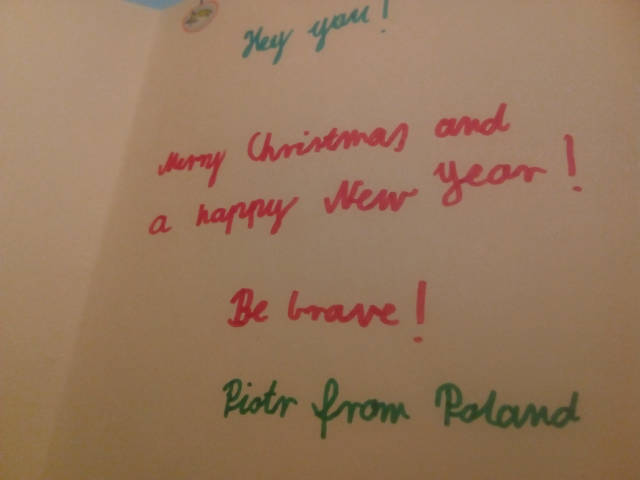 Hey you!
Merry Christmas and
a happy New Year!
Be brave!
Piotr from Poland